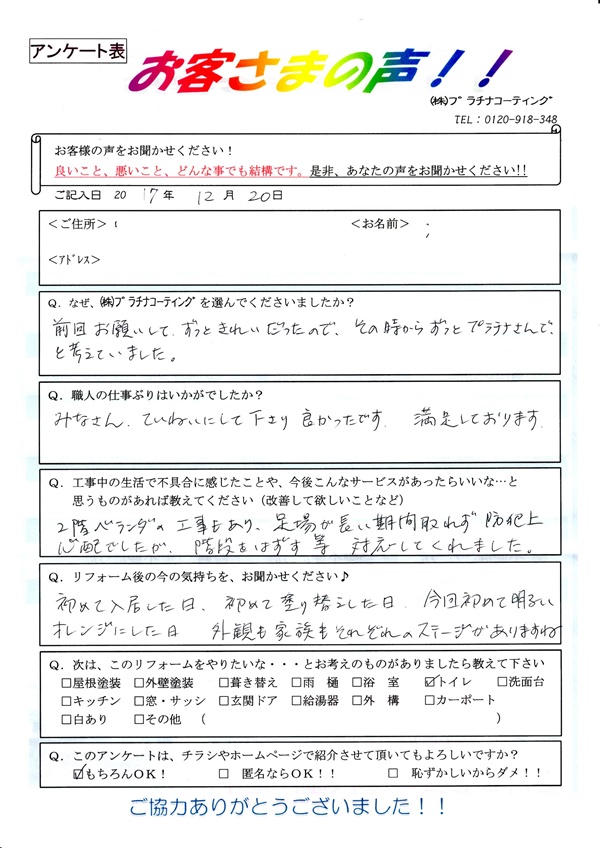 アンケート表
お客さまの声！！
㈱ﾌﾟﾗﾁﾅｺｰﾃｨﾝｸﾞ
TEL：0120-918-348
お客様の声をお聞かせください！
良いこと、悪いこと、どんな事でも結構です。是非、あなたの声をお聞かせください!!
ご記入日 2017年 12月 20日
＜ご住所＞ ＜お名前＞
＜ｱﾄﾞﾚｽ＞
Q．なぜ、㈱ﾌﾟﾗﾁﾅｺｰﾃｨﾝｸﾞを選んでくださいましたか？
前回お願いして、ずっときれいだったので、その時からずっとプラチナさんで、
と考えていました。
Q．職人の仕事ぶりはいかがでしたか？
みなさん、ていねいにして下さり良かったです。 満足しております。
Q．工事中の生活で不具合に感じたことや、今後こんなサービスがあったらいいな…と
思うものがあれば教えてください（改善して欲しいことなど）
2階ベランダの工事もあり、足場が長い期間取れず防犯上
心配でしたが、階段をはずす等 対応してくれました。
Q．リフォーム後の今の気持ちを、お聞かせください♪
初めて入居した日、初めて塗り替えした日、今回初めて明るい
オレンジにした日 外観も家族もそれぞれのステージがありますね
Q．次は、このリフォームをやりたいな・・・とお考えのものがありましたら教えて下さい
□屋根塗装 □外壁塗装 □葺き替え □雨 樋 □浴 室 ☑トイレ □洗面台
□キッチン □窓・サッシ □玄関ドア □給湯器 □外 構 □カーポート
□白あり □その他 （ ）
Q．このアンケートは、チラシやホームページで紹介させて頂いてもよろしいですか？
☑もちろんOK！ □ 匿名ならOK！！ □ 恥ずかしいからダメ！！
ご協力ありがとうございました！！